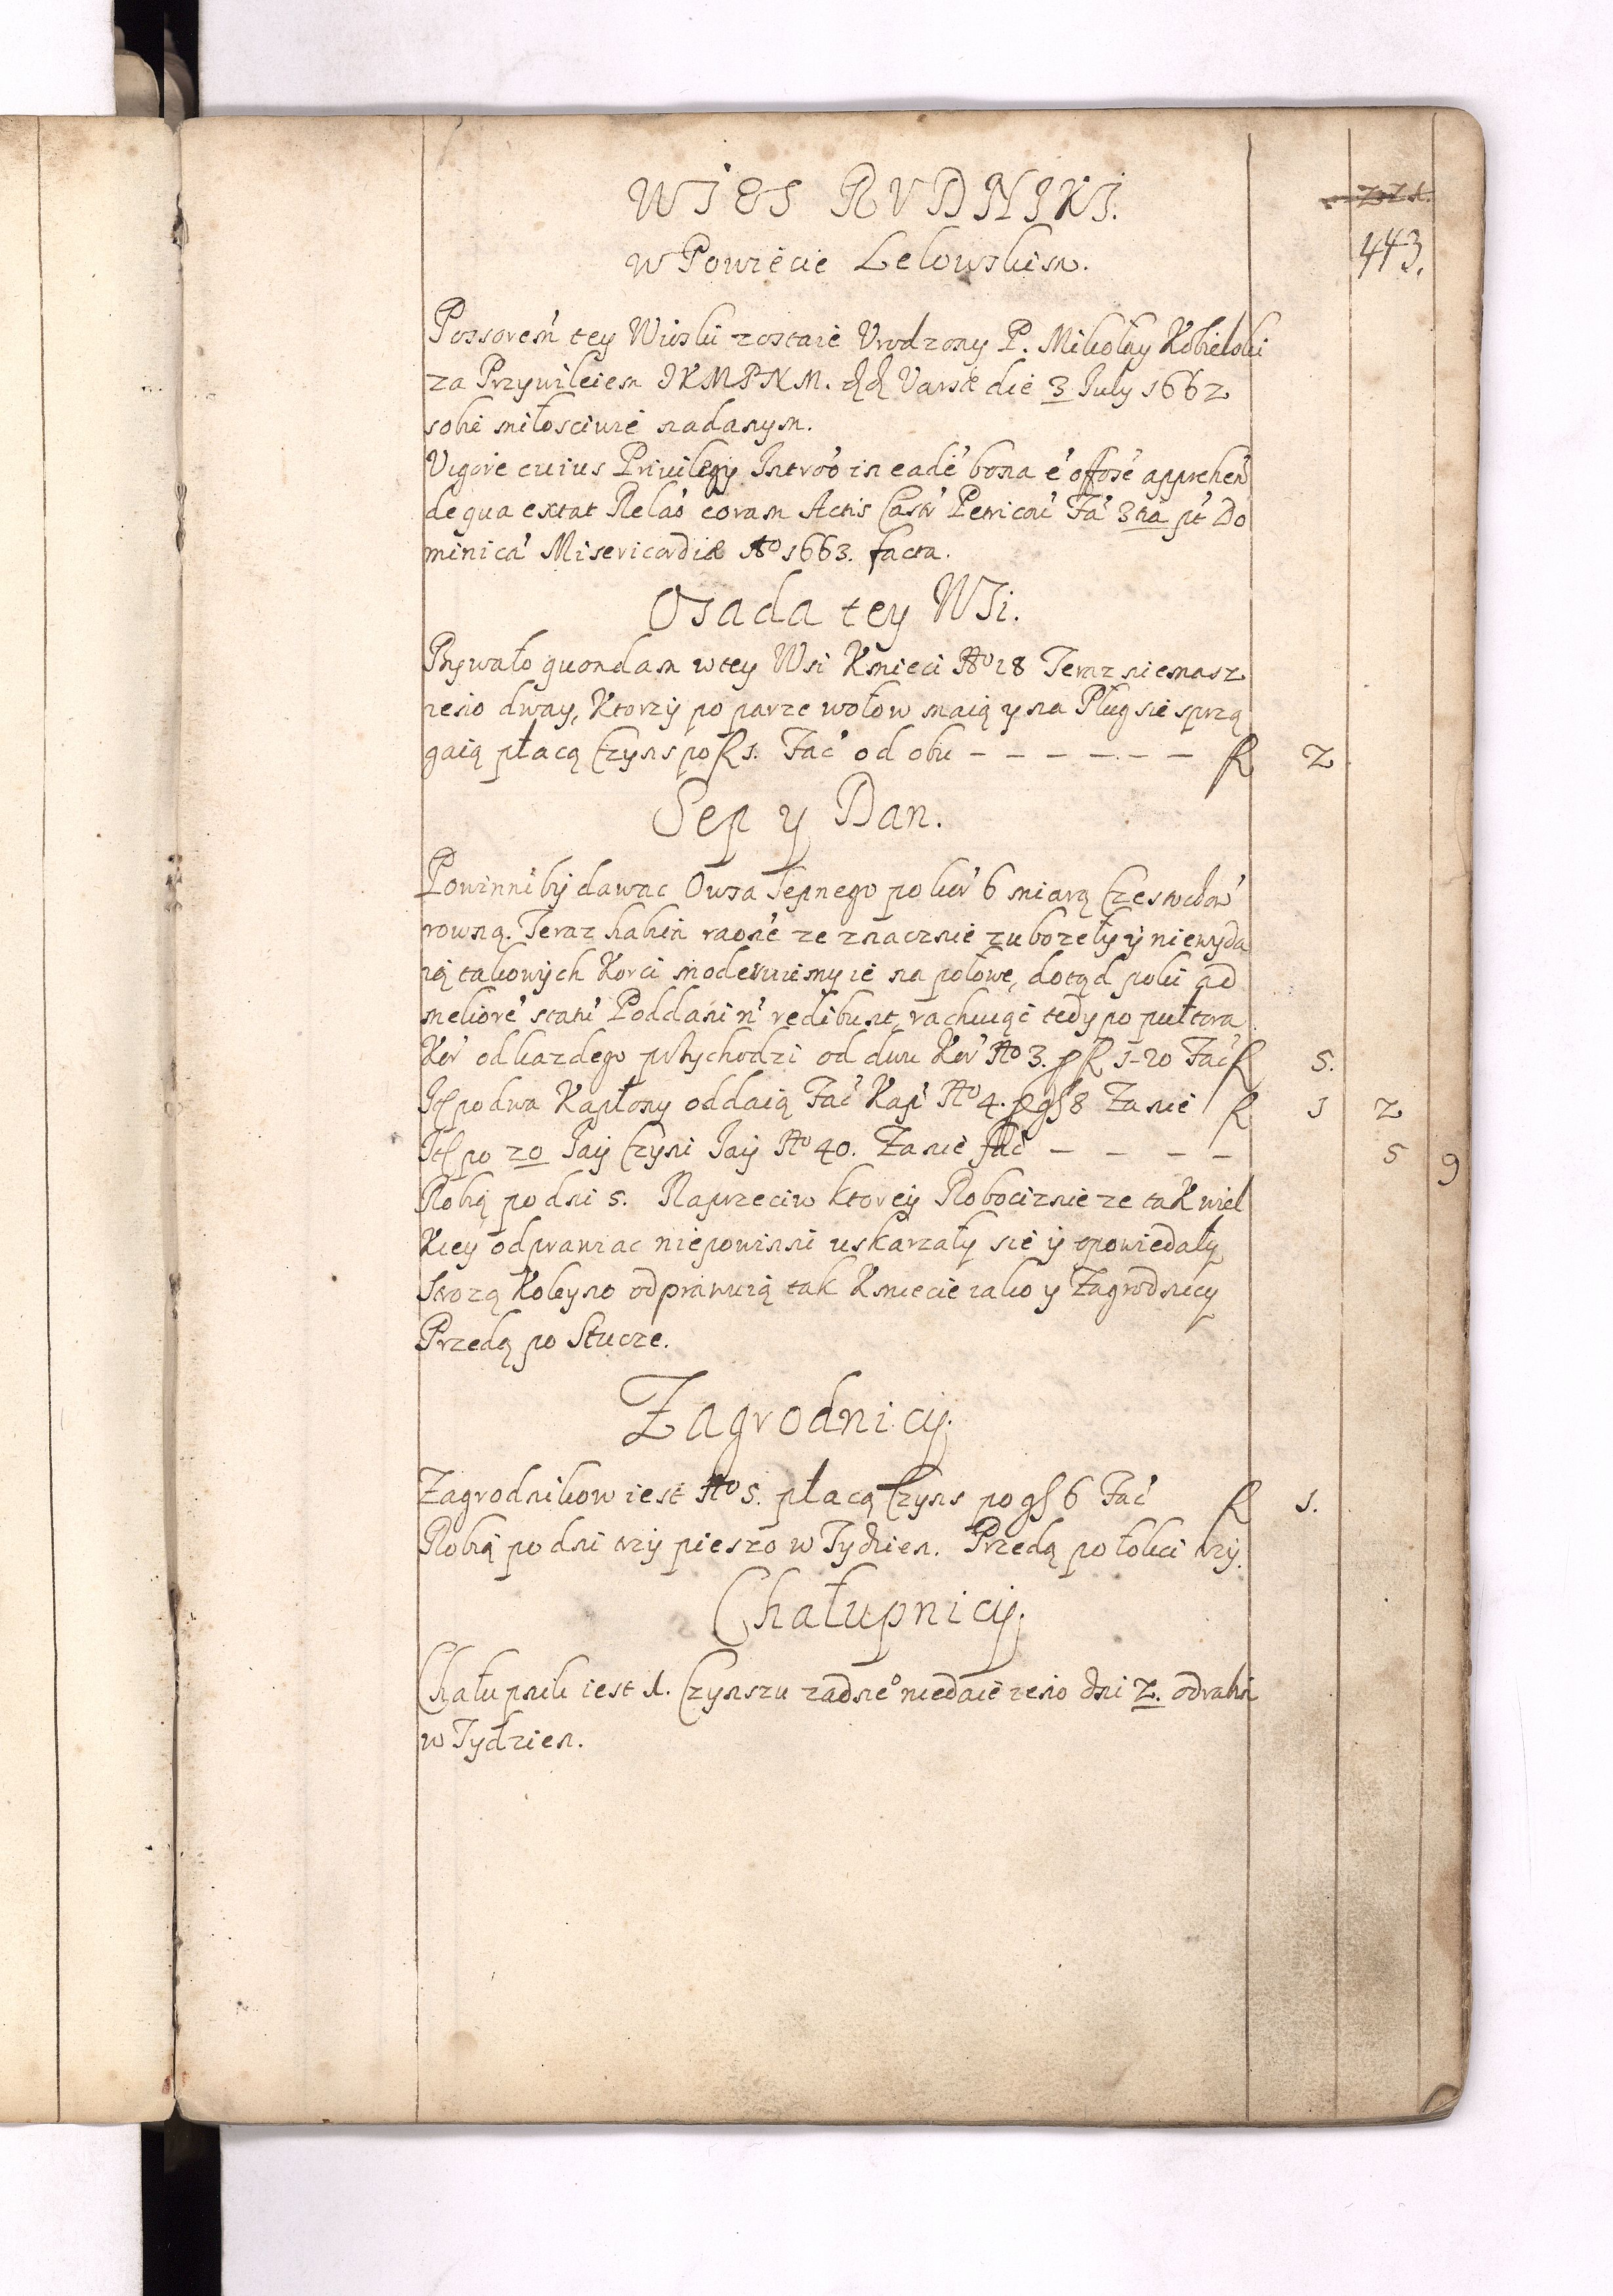 WIES RVDNIKI.
w Powiecie Lelowskim.
443.
Possorem̃ tey Wioski zostaie Vrodzony P. Mikołay Kobielski
za Przywileiem JKMPNM. dd Varsæ die 3 July 1662
sobie miłosciwie nadanym.
Vigore cuius Privilegy Intro͂o in eade͂ bona e͂ offose͂ apprehen͂
de qua extat Rela͂o coram Actis Castr͂ Petricou͂ Fa͂ 3tia pt͂ Do
minica͂ Misericordiæ Ao 1663. facta.
Osada tey WSi.
Bywało quondam w tey Wsi Kmieci No 18 Teraz niemasz
ieno dway, Ktorzy po parze wołow maią y na Pług sie sprzą
gaią płacą Czyns po fl 1. Fac͂ od obu - - - - - - - fl 2
Sep y Dan.
Powinni by dawac Owsa sepnego po kor͂ 6 miarą Czestochow͂
rowną. Teraz habita ra͂one ze znacznie zubozeły y niewyda
ią takowych Korci moderuiemy ie na połowe, dotąd poki ad
meliore͂ statu͂ Poddani n͂ redibunt, rachuiąc tedy po pułtora
Kor͂ od kazdego przychodzi od dwu Kor͂ No 3. p fl 1-20 Fac͂ fl 5.
Jt͂ po dwa Kapłony oddaią Fac͂ Kap͂ No 4. p gs 8 Za nie fl 1 2
Jt͂ po 20 Jaij Czyni Jaij No 40. Za nie fac͂ - - - - 5 9
Robią po dni 5. Naprzeciw ktorey Robociznie ze tak wiel
kiey odprawiac niepowinni uskarzały sie y opowiedały
Strozą Koleyno odprawuią tak Kmiecie iako y Zagrodnicy
Przedą po Stucze.
Zagrodnicy.
Zagrodnikow iest No 5. płacą Czyns po gs 6 Fac͂ fl 1.
Robią po dni trzy pieszo w Tydzien. Przedą po łokci trzy.
Chałupnicy.
Chałupnik iest 1. Czynszu zadneo niedaie ieno dni 2. odrabia
w Tydzien.